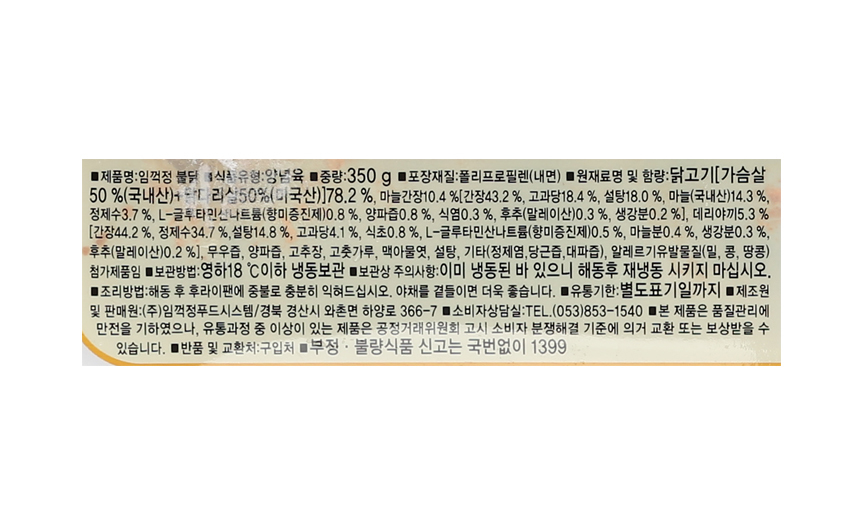 ■제품명:임꺽정 불닭 ■식품유형:양념육 ■중량:350 g ■포장재질:폴리프로필렌(내면) ■원재료명 및 함량:닭고기[가슴살
50 %(국내산)+닭다리살50%(미국산)]78.2 %, 마늘간장10.4 %[간장43.2 %, 고과당18.4 %, 설탕18.0 %, 마늘(국내산)14.3 %,
정제수3.7 %, L-글루타민산나트륨(향미증진제)0.8 %, 양파즙0.8 %, 식염0.3 %, 후추(말레이산)0.3 %, 생강분0.2 %], 데리야끼5.3 %
[간장44.2 %, 정제수34.7 %,설탕14.8 %, 고과당4.1 %, 식초0.8 %, L-글루타민산나트륨(향미증진제)0.5 %, 마늘분0.4 %, 생강분0.3 %,
후추(말레이산)0.2 %], 무우즙, 양파즙, 고추장, 고춧가루, 맥아물엿, 설탕, 기타(정제염,당근즙,대파즙), 알레르기유발물질(밀, 콩, 땅콩)
첨가제품임 ■보관방법:영하18 ℃이하 냉동보관 ■보관상 주의사항:이미 냉동된 바 있으니 해동후 재냉동 시키지 마십시오.
■조리방법:해동 후 후라이팬에 중불로 충분히 익혀드십시오. 야채를 곁들이면 더욱 좋습니다. ■유통기한:별도표기일까지 ■제조원
및 판매원:(주)임꺽정푸드시스템/경북 경산시 와촌면 하양로 366-7 ■소비자상담실:TEL.(053)853-1540 ■본 제품은 품질관리에
만전을 기하였으나, 유통과정 중 이상이 있는 제품은 공정거래위원회 고시 소비자 분쟁해결 기준에 의거 교환 또는 보상받을 수
있습니다. ■반품 및 교환처:구입처 ■부정·불량식품 신고는 국번없이 1399